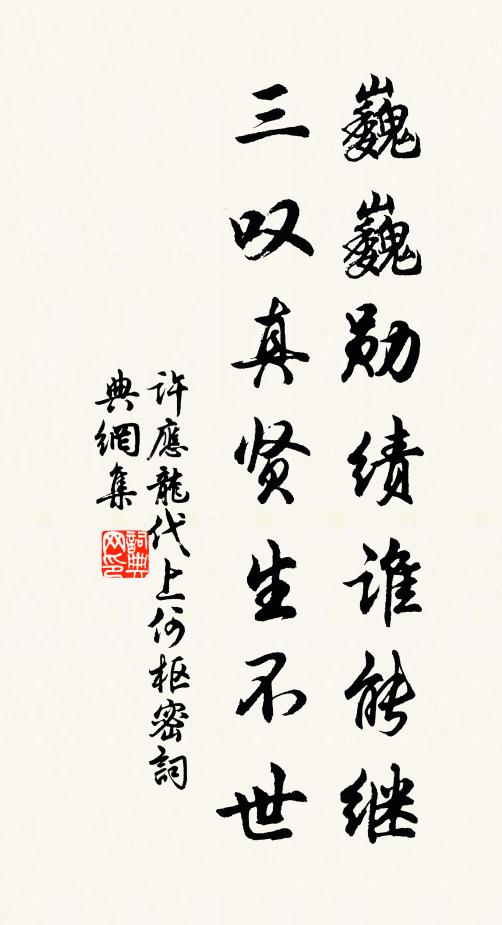 巍巍勋绩谁能继
三叹真贤生不世
许應龍代上何枢密詞
典網集
詞典网印